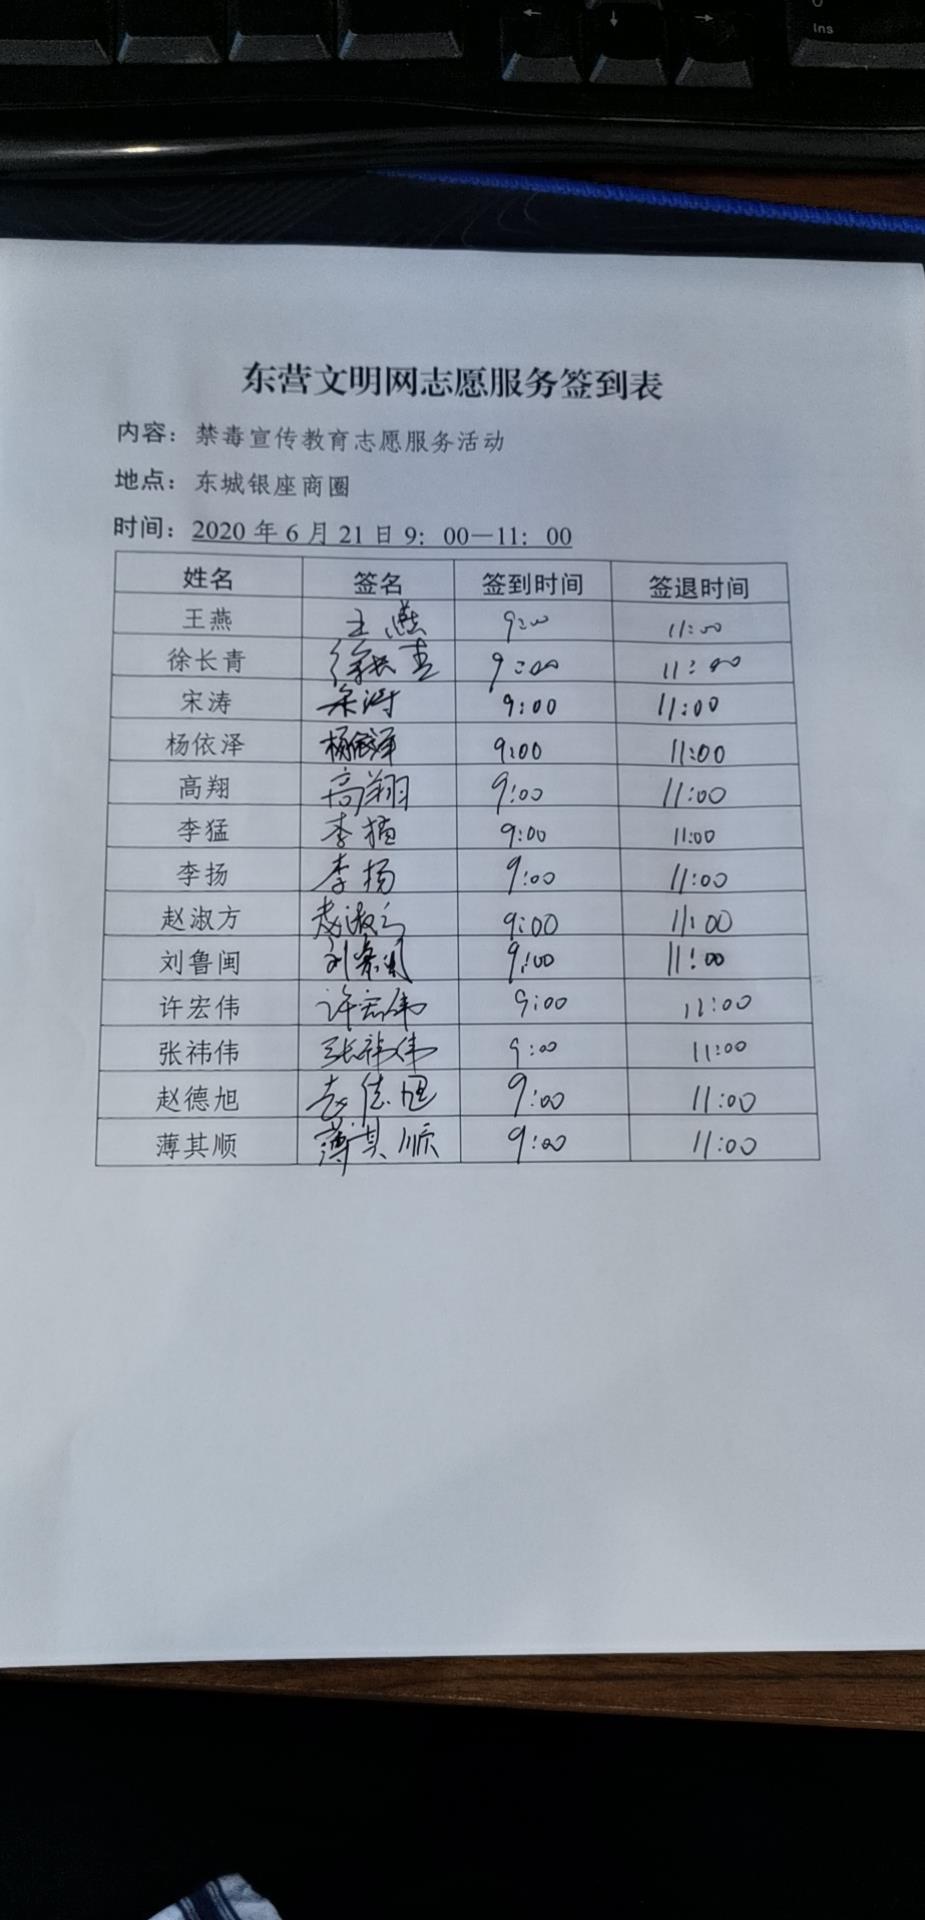 Ins
东营文明网志愿服务签到表
内容：禁毒宣传教育志愿服务活动
地点：东城银座商圈
时间：2020 年 6 月 21 日 9：00—11：00
姓名 签名 签到时间 签退时间
王燕 王燕 9:00 11:00
徐长青 徐长青 9:00 11:00
宋涛 宋涛 9:00 11:00
杨依泽 杨依泽 9:00 11:00
高翔 高翔 9:00 11:00
李猛 李猛 9:00 11:00
李扬 李扬 9:00 11:00
赵淑方 赵淑方 9:00 11:00
刘鲁闽 刘鲁闽 9:00 11:00
许宏伟 许宏伟 9:00 11:00
张祎伟 张祎伟 9:00 11:00
赵德旭 赵德旭 9:00 11:00
薄其顺 薄其顺 9:00 11:00